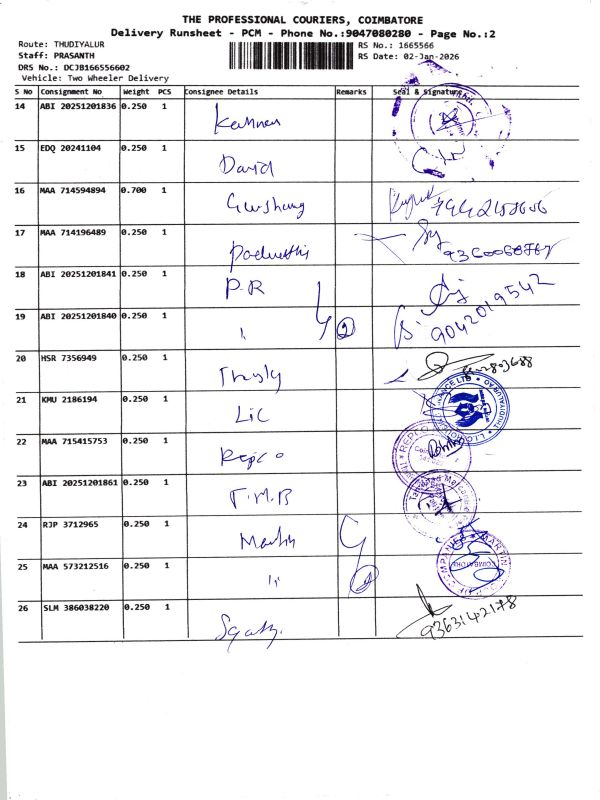 THE PROFESSIONAL COURIERS, COIMBATORE
Delivery Runsheet - PCM - Phone No.:9047080280 - Page No.:2
Route: THUDIYALUR
RS No.: 1665566
Staff: PRASANTH
RS Date: 02-Jan-2026
DRS No.: DCJB166556602
Vehicle: Two Wheeler Delivery
S No Consignment No Weight PCS Consignee Details Remarks Seal & Signature
14 ABI 20251201836 0.250 1 Kannan
15 EDQ 20241104 0.250 1 David
16 MAA 714594894 0.700 1
17 MAA 714196489 0.250 1
18 ABI 20251201841 0.250 1 P-R
19 ABI 20251201840 0.250 1 " 2 9042019542
20 HSR 7356949 0.250 1
21 KMU 2186194 0.250 1 LIC
22 MAA 715415753 0.250 1 Repco REPCO
23 ABI 20251201861 0.250 1 T.M.B
24 RJP 3712965 0.250 1 Martin
25 MAA 573212516 0.250 1 " 2 MARTIN COIMBATORE
26 SLM 386038220 0.250 1 9363142178